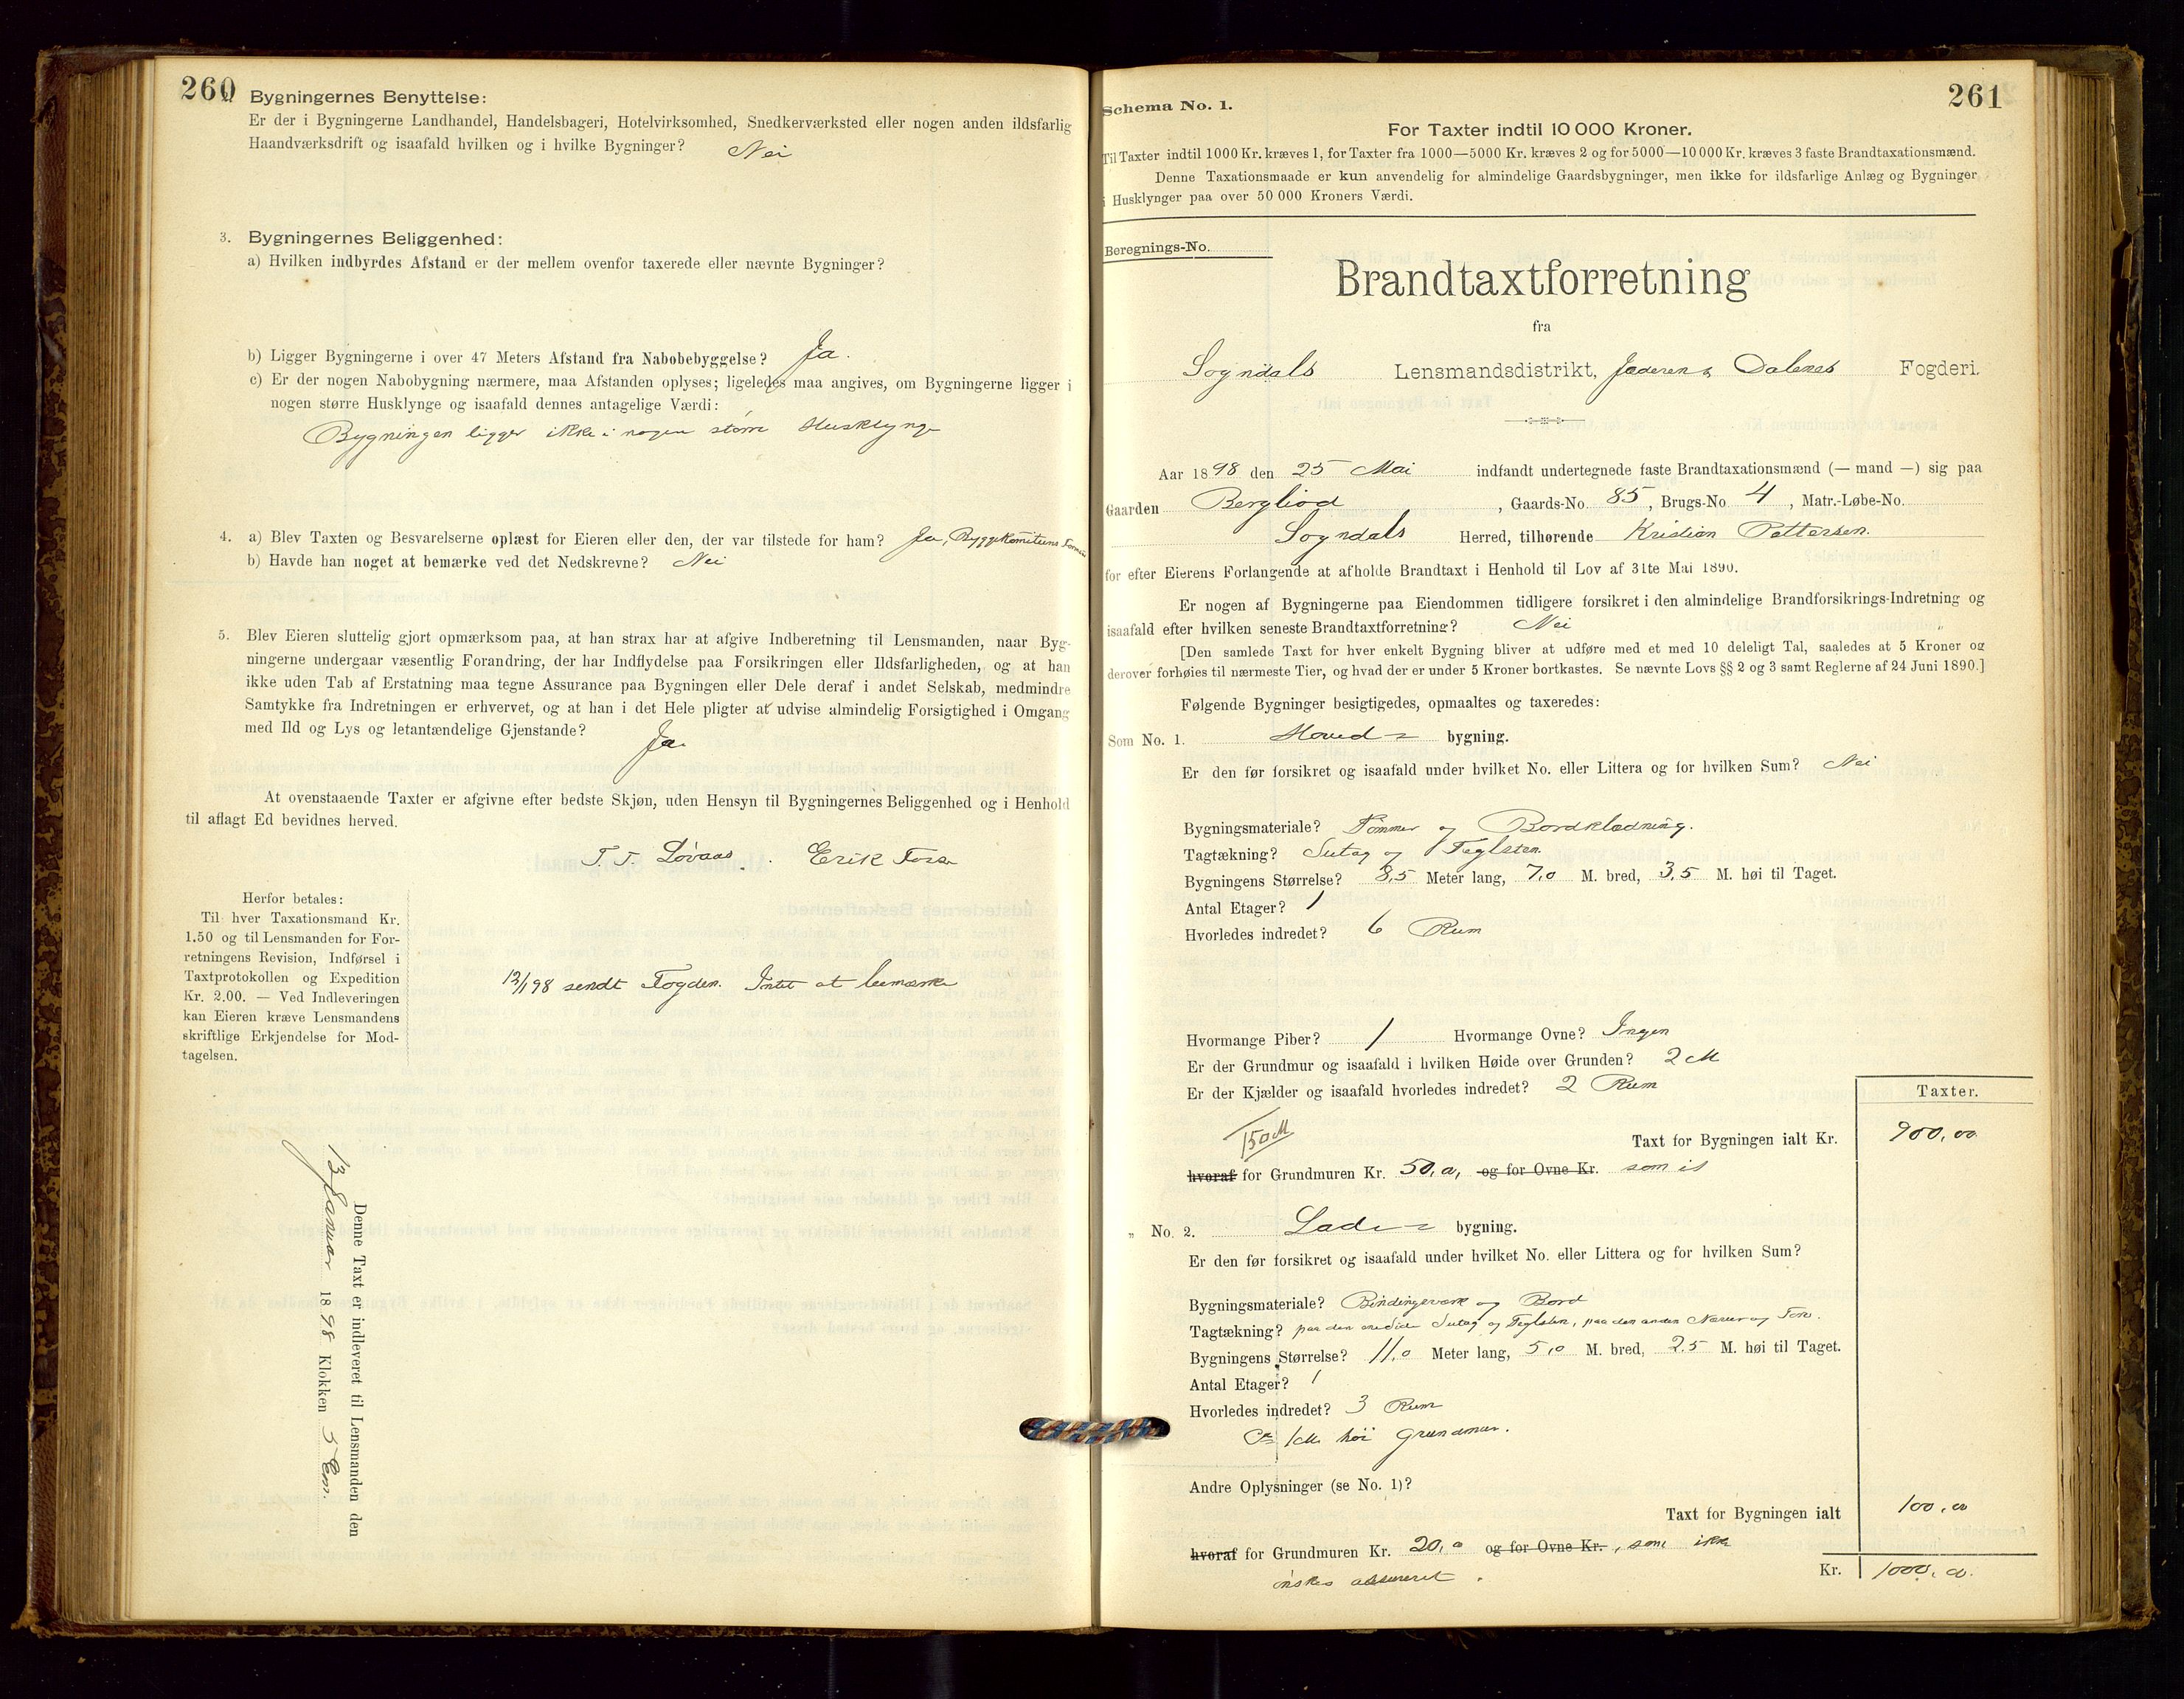 260
2. Bygningernes Benyttelse:
Er der i Bygningerne Landhandel, Handelsbageri, Hotelvirksomhed, Snedkerværksted eller nogen anden ildsfarlig
Haandværksdrift og isaafald hvilken og i hvilke Bygninger? Nei
3. Bygningernes Beliggenhed:
a) Hvilken indbyrdes Afstand er der mellem ovenfor taxerede eller nævnte Bygninger?
b) Ligger Bygningerne i over 47 Meters Afstand fra Nabobebyggelse? Ja.
c) Er der nogen Nabobygning nærmere, maa Afstanden oplyses; ligeledes maa angives, om Bygningerne ligger i
nogen større Husklynge og isaafald dennes antagelige Værdi:
Bygningen ligger ikke i nogen større Husklynge
4. a) Blev Taxten og Besvarelserne oplæst for Eieren eller den, der var tilstede for ham? Ja, Byggekomiteens
b) Havde han noget at bemærke ved det Nedskrevne? Nei
5. Blev Eieren sluttelig gjort opmærksom paa, at han strax har at afgive Indberetning til Lensmanden, naar Byg-
ningerne undergaar væsentlig Forandring, der har Indflydelse paa Forsikringen eller Ildsfarligheden, og at han
ikke uden Tab af Erstatning maa tegne Assurance paa Bygningen eller Dele deraf i andet Selskab, medmindre
Samtykke fra Indretningen er erhvervet, og at han i det Hele pligter at udvise almindelig Forsigtighed i Omgang
med Ild og Lys og letantændelige Gjenstande?
Ja.
At ovenstaaende Taxter er afgivne efter bedste Skjøn, uden Hensyn til Bygningernes Beliggenhed og i Henhold
til aflagt Ed bevidnes herved.
T. T. Løvaas. Erik
Herfor betales:
Til hver Taxationsmand Kr.
1.50 og til Lensmanden for For-
retningens Revision, Indførsel i
Taxtprotokollen og Expedition
Kr. 2.00. — Ved Indleveringen
kan Eieren kræve Lensmandens
skriftlige Erkjendelse for Mod-
tagelsen.
13/1 98 sendt Fogden. Intet at bemærke
Denne Taxt er indleveret til Lensmanden den
13 Januar 1898 Klokken 5 Em.
261
Schema No. 1.
For Taxter indtil 10 000 Kroner.
Til Taxter indtil 1000 Kr. kræves 1, for Taxter fra 1000—5000 Kr. kræves 2 og for 5000—10 000 Kr. kræves 3 faste Brandtaxationsmænd.
Denne Taxationsmaade er kun anvendelig for almindelige Gaardsbygninger, men ikke for ildsfarlige Anlæg og Bygninger
i Husklynger paa over 50 000 Kroners Værdi.
Beregnings-No.
Brandtaxtforretning
fra
Sogndals Lensmandsdistrikt, Jæderen & Dalenes Fogderi.
Aar 1898 den 25 Mai indfandt undertegnede faste Brandtaxationsmænd (— mand —) sig paa
Gaarden Bergliod, Gaards-No. 85, Brugs-No. 4, Matr.-Løbe-No.
Sogndals Herred, tilhørende Kristian Pettersen.
for efter Eierens Forlangende at afholde Brandtaxt i Henhold til Lov af 31te Mai 1890.
Er nogen af Bygningerne paa Eiendommen tidligere forsikret i den almindelige Brandforsikrings-Indretning og
isaafald efter hvilken seneste Brandtaxtforretning? Nei
[Den samlede Taxt for hver enkelt Bygning bliver at udføre med et med 10 deleligt Tal, saaledes at 5 Kroner og
derover forhøies til nærmeste Tier, og hvad der er under 5 Kroner bortkastes. Se nævnte Lovs §§ 2 og 3 samt Reglerne af 24 Juni 1890.]
Følgende Bygninger besigtigedes, opmaaltes og taxeredes:
Som No. 1. Hoved- bygning.
Er den før forsikret og isaafald under hvilket No. eller Littera og for hvilken Sum? Nei
Bygningsmateriale? Tømmer og Bordklædning.
Tagtækning? Sutag og Teglsten.
Bygningens Størrelse? 8,5 Meter lang, 7,0 M. bred, 3,5 M. høi til Taget.
Antal Etager? 1
Hvorledes indredet? 6 Rum
Hvormange Piber? 1 Hvormange Ovne? Ingen
Er der Grundmur og isaafald i hvilken Høide over Grunden? 2 M
Er der Kjælder og isaafald hvorledes indredet? 2 Rum
Taxter.
150 M
Taxt for Bygningen ialt Kr. 900,00
hvoraf for Grundmuren Kr. 50,0, og for Ovne Kr. som
„ No. 2. Lade- bygning.
Er den før forsikret og isaafald under hvilket No. eller Littera og for hvilken Sum?
Bygningsmateriale? Bindingsværk og Bord
Tagtækning? paa den ene Side Sutag og Teglsten, paa den anden Næver og Torv.
Bygningens Størrelse? 11,0 Meter lang, 5,0 M. bred, 2,5 M. høi til Taget.
Antal Etager? 1
Hvorledes indredet? 3 Rum
Ca 1 M. høi Grundmur.
Andre Oplysninger (se No. 1)?
Taxt for Bygningen ialt 100,00
hvoraf for Grundmuren Kr. 20,0 og for Ovne Kr., som ikke
ønskes assureret.
Kr. 1000,00.